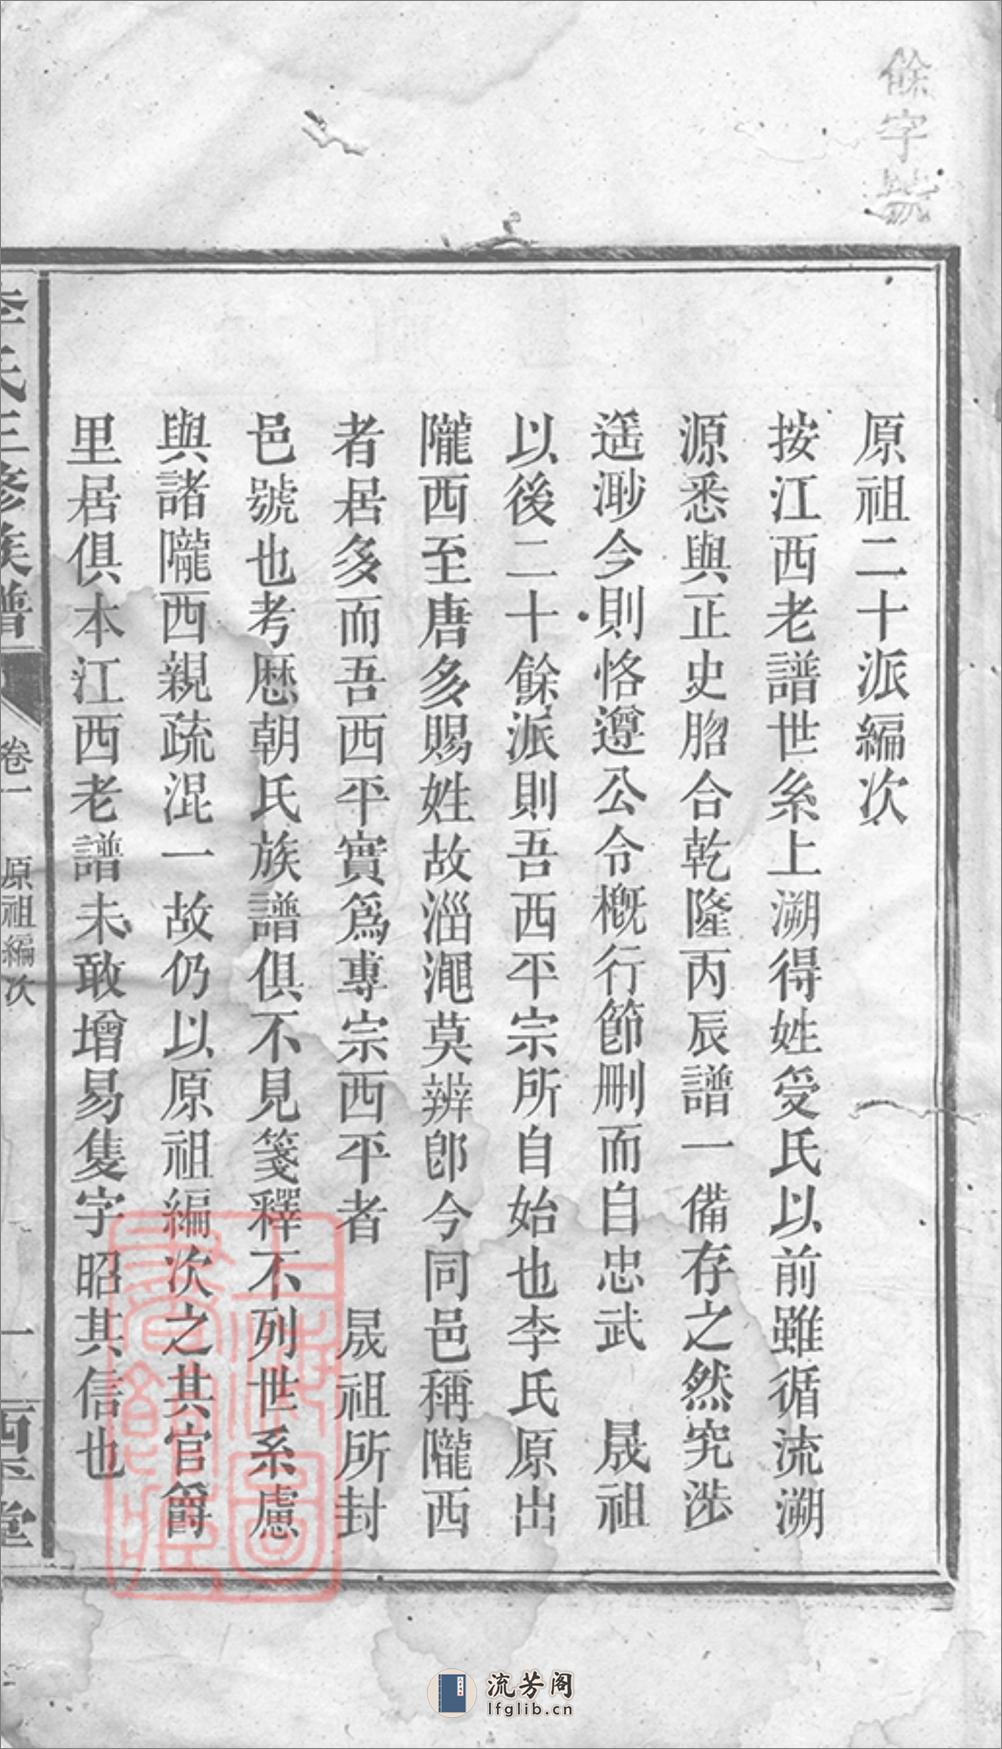 餘字號
原祖二十派編次
按江西老譜世系上溯得姓受氏以前雖循流溯
源悉與正史脗合乾隆丙辰譜一備存之然究涉
遥渺今則恪遵公令概行節刪而自忠武　晟祖
以後二十餘派則吾西平宗所自始也李氏原出
隴西至唐多賜姓故淄澠莫辨卽今同邑稱隴西
者居多而吾西平實爲專宗西平者　晟祖所封
邑號也考歴朝氏族譜俱不見箋釋不列世系慮
與諸隴西親疏混一故仍以原祖編次之其官爵
里居俱本江西老譜未敢增易隻字昭其信也
李氏三修族譜　卷一　原祖編次　一　西平堂
上海圖書館藏
流芳阁
lfglib.cn